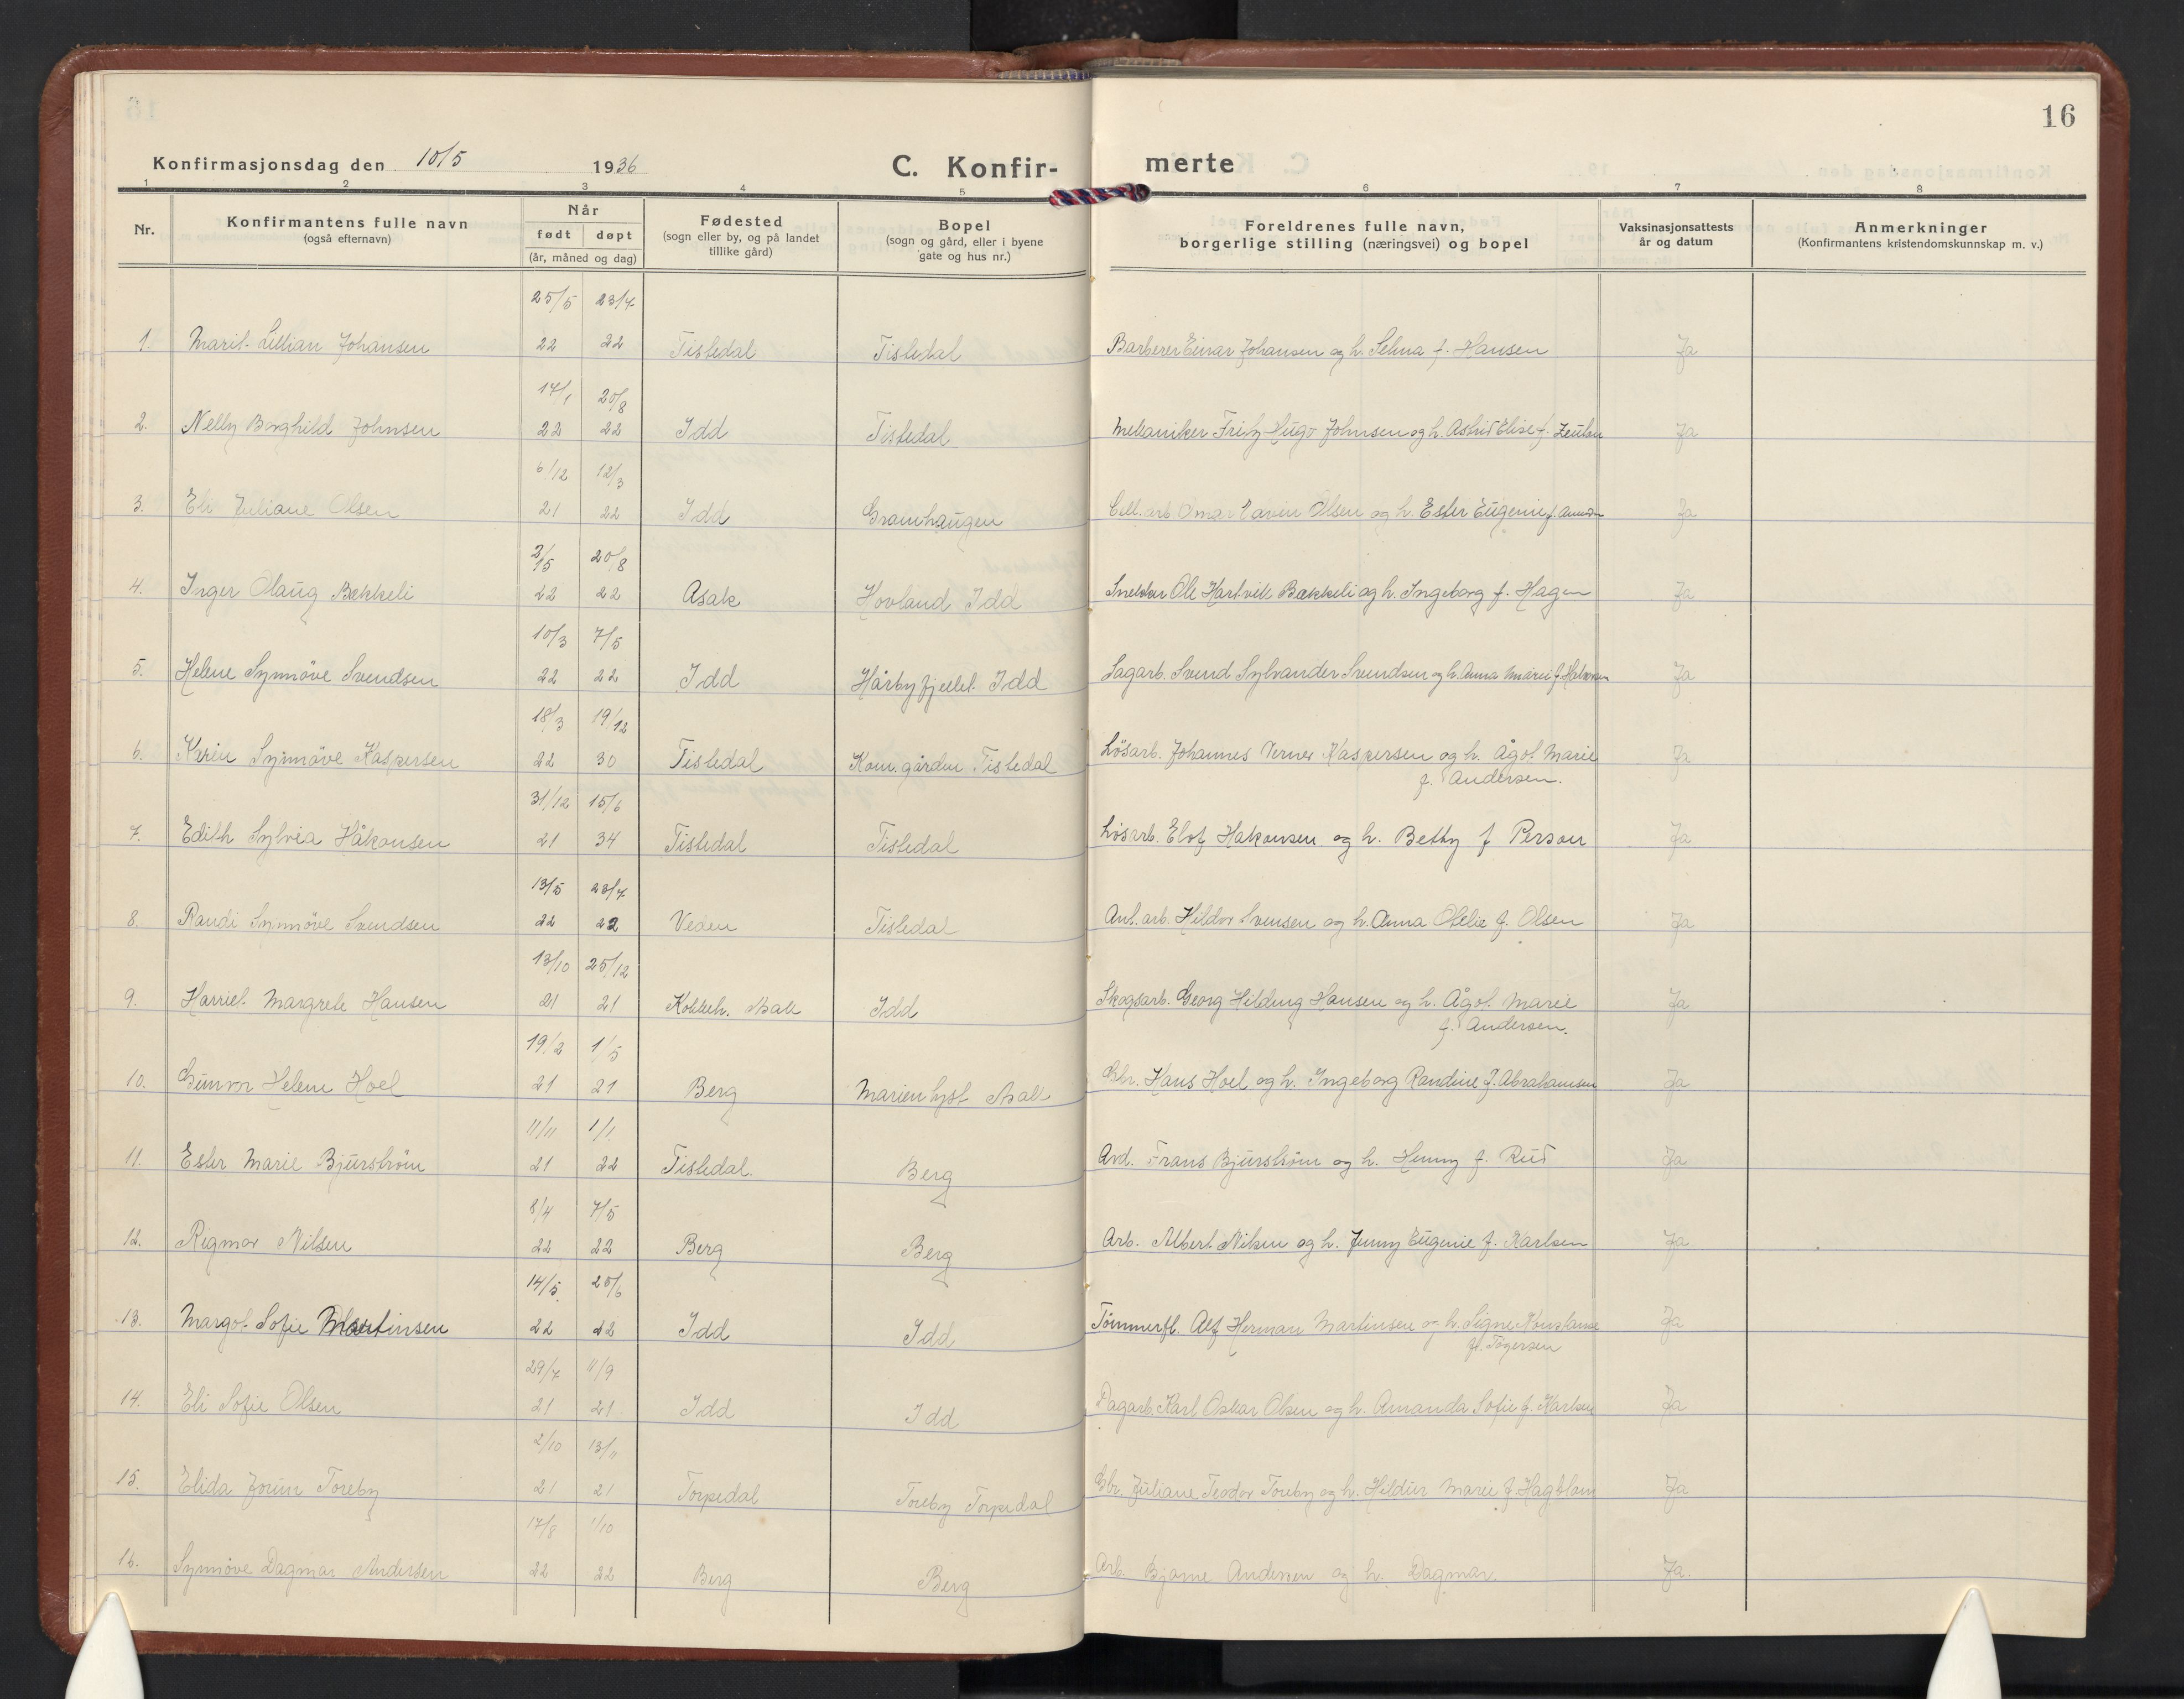 16
Konfirmasjonsdag den 10/5 1936
C. Konfir-
merte
1 2 3 4 5 6 7 8
Nr.
Konfirmantens fulle navn
(også efternavn)
Når
født døpt
(år, måned og dag)
Fødested
(sogn eller by, og på landet
tillike gård)
Bopel
(sogn og gård, eller i byene
gate og hus nr.)
Foreldrenes fulle navn,
borgerlige stilling (næringsvei) og bopel
Vaksinasjonsattests
år og datum
Anmerkninger
(Konfirmantens kristendomskunnskap m. v.)
25/5 23/7
1. Marit Lillian Johansen 22 22 Tistedal Tistedal Barberer Einar Johansen og h. Selma f. Hansen Ja
17/1 20/8
2. Nelly Borghild Johnsen 22 22 Idd Tistedal Mekaniker Fritz Hugo Johnsen og h. Astrid Elise f. Ja
6/12 12/3
3. Eli Juliane Olsen 21 22 Idd Granhaugen Cell. arb. Omar Olsen og h. Ester Eugenie f. Ja
3/5 20/8
4. Inger Olaug Bekkeli 22 22 Asak Hovland Idd Snekker Ole Hartvik Bekkeli og h. Ingeborg f. Hagen Ja
10/3 7/5
5. Helene Synnöve Svendsen 22 22 Idd Hårbyfjellet Idd Sagarb. Svend Sylvander Svendsen og h. Anna Marie f. Halvorsen Ja
18/3 19/12
6. Karin Synnöve Kaspersen 22 30 Tistedal Kom. gården Tistedal Lösarb. Johannes Verner Kaspersen og h. Ågot Marie Ja
f. Andersen.
31/12 15/6
7. Edith Sylvia Håkonsen 21 34 Tistedal Tistedal Lösarb. Elof Hakonsen og h. Betty f Person Ja
13/5 23/7
8. Randi Synnöve Svendsen 22 22 Veden Tistedal Anl. arb. Hildor Svensen og h. Anna Otelie f. Olsen Ja
13/10 25/12
9. Harriet Margrete Hansen 21 21 Kokkeh. Asak Idd Skogsarb. Georg Hilding Hansen og h. Ågot Marie Ja
f. Andersen.
19/2 1/5
10. Gunvor Helene Hoel 21 21 Berg Marienlyst Asak Gbr. Hans Hoel og h. Ingeborg Randine f. Abrahamsen Ja
11/11 1/1
11. Ester Marie Bjurström 21 22 Tistedal. Berg Arb. Frans Bjurström og h. Henny f. Rud Ja
8/4 7/5
12. Rigmor Nilsen 22 22 Berg Berg Arb. Albert Nilsen og h. Jenny Eugenie f. Karlsen Ja
14/5 25/6
13. Margot Sofie Martinsen 22 22 Idd Idd Tömmerfl. Alf Herman Martinsen og h. Signe Konstanse Ja
f. Togersen
29/7 11/9
14. Eli Sofie Olsen 21 21 Idd Idd Dagarb. Karl Oskar Olsen og h. Amanda Sofie f. Karlsen Ja
2/10 13/11
15. Elida Jorun Toreby 21 21 Torpedal Toreby Torpedal Gbr. Juliane Teodor Toreby og h. Hildur Marie f. Ja
17/8 1/10
16. Synnöve Dagmar Andersen 22 22 Berg Berg Arb. Bjarne Andersen og h. Dagmar. Ja.